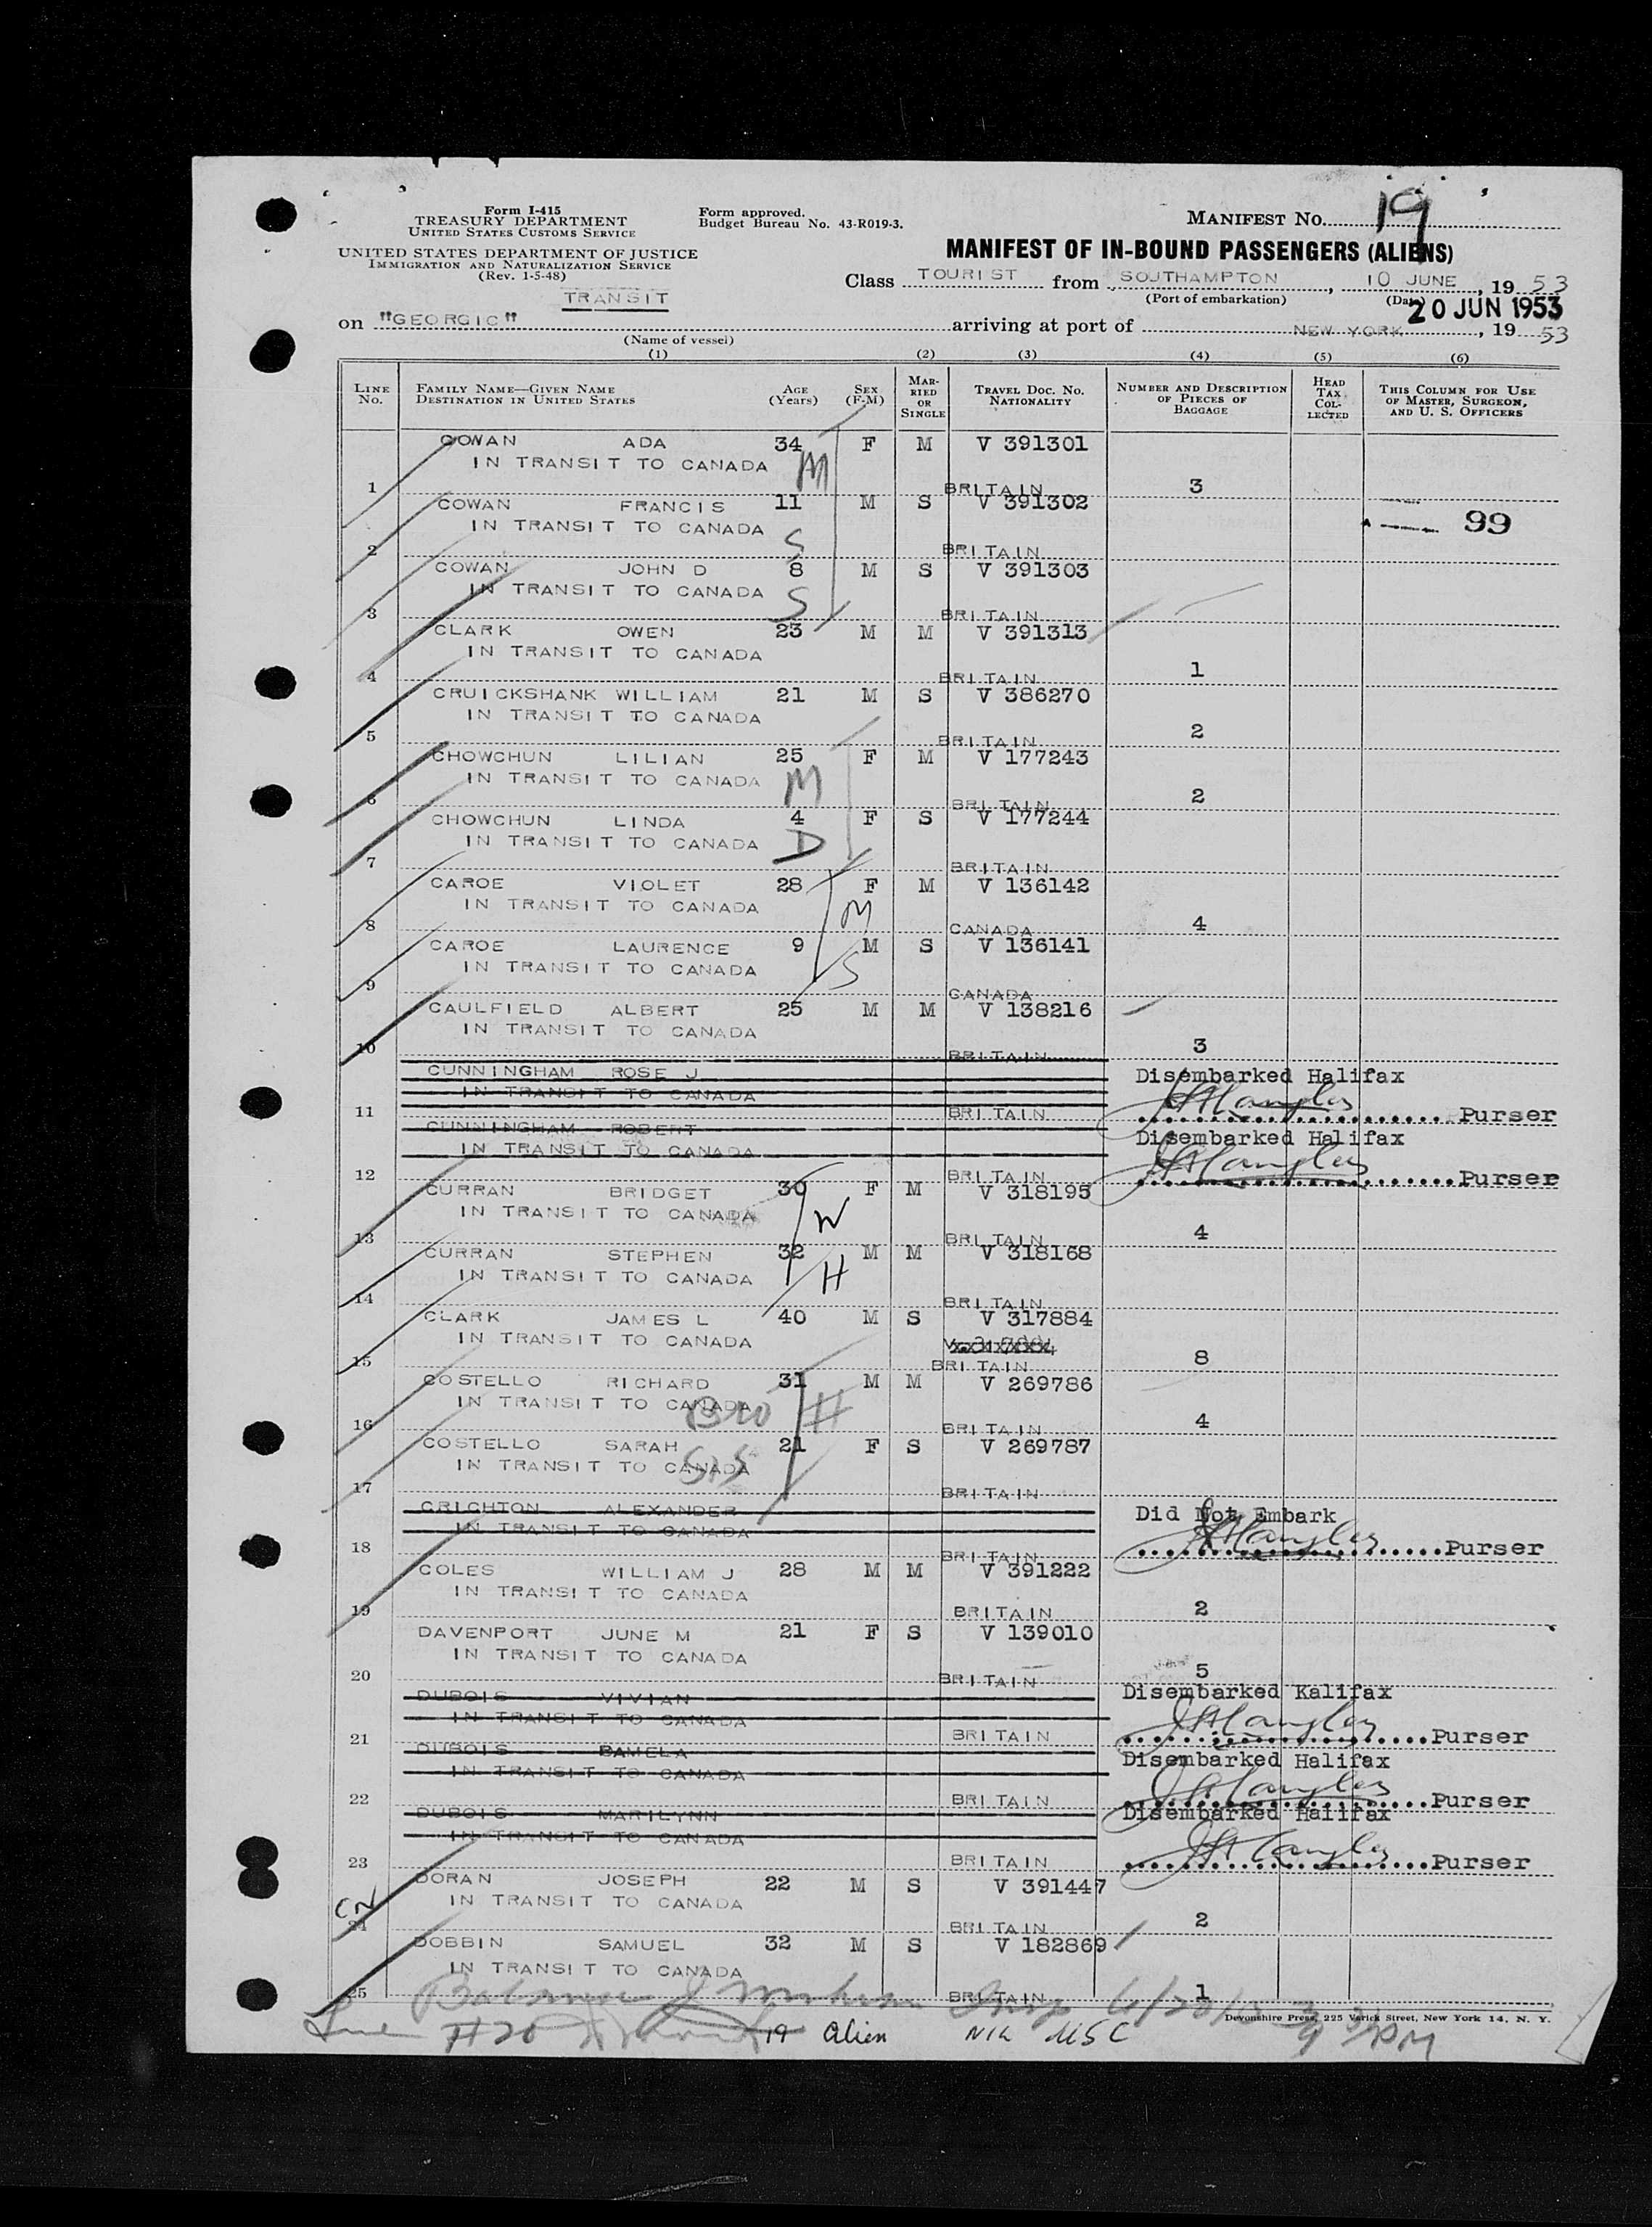 Form I-415
TREASURY DEPARTMENT
UNITED STATES CUSTOMS SERVICE
UNITED STATES DEPARTMENT OF JUSTICE
IMMIGRATION AND NATURALIZATION SERVICE
(Rev. 1-5-48)
Form approved.
Budget Bureau No. 43-R019-3.
MANIFEST No. 19
MANIFEST OF IN-BOUND PASSENGERS (ALIENS)
Class TOURIST from SOUTHAMPTON, 10 JUNE, 19 53
(Port of embarkation) (Date)
TRANSIT
20 JUN 1953
on "GEORGIC" arriving at port of NEW YORK, 19 53
(Name of vessel)
(1) (2) (3) (4) (5) (6)
LINE No. FAMILY NAME—GIVEN NAME DESTINATION IN UNITED STATES AGE (Years) SEX (F-M) MARRIED OR SINGLE TRAVEL DOC. No. NATIONALITY NUMBER AND DESCRIPTION OF PIECES OF BAGGAGE HEAD TAX COLLECTED THIS COLUMN FOR USE OF MASTER, SURGEON, AND U. S. OFFICERS
COWAN ADA 34 F M V 391301
IN TRANSIT TO CANADA M
1 BRITAIN 3
COWAN FRANCIS 11 M S V 391302
IN TRANSIT TO CANADA S 99
2 BRITAIN
COWAN JOHN D 8 M S V 391303
IN TRANSIT TO CANADA S
3 BRITAIN
CLARK OWEN 23 M M V 391313
IN TRANSIT TO CANADA
4 BRITAIN 1
CRUICKSHANK WILLIAM 21 M S V 386270
IN TRANSIT TO CANADA
5 BRITAIN 2
CHOWCHUN LILIAN 25 F M V 177243
IN TRANSIT TO CANADA M
6 BRITAIN 2
CHOWCHUN LINDA 4 F S V 177244
IN TRANSIT TO CANADA D
7 BRITAIN
CAROE VIOLET 28 F M V 136142
IN TRANSIT TO CANADA M
8 CANADA 4
CAROE LAURENCE 9 M S V 136141
IN TRANSIT TO CANADA S
9 CANADA
CAULFIELD ALBERT 25 M M V 138216
IN TRANSIT TO CANADA
10 BRITAIN 3
CUNNINGHAM ROSE J Disembarked Halifax
IN TRANSIT TO CANADA
11 BRITAIN Purser
CUNNINGHAM ROBERT Disembarked Halifax
IN TRANSIT TO CANADA
12 BRITAIN Purser
CURRAN BRIDGET 30 F M V 318195
IN TRANSIT TO CANADA W
13 BRITAIN 4
CURRAN STEPHEN 32 M M V 318168
IN TRANSIT TO CANADA H
14 BRITAIN
CLARK JAMES L 40 M S V 317884
IN TRANSIT TO CANADA
15 BRITAIN 8
COSTELLO RICHARD 31 M M V 269786
IN TRANSIT TO CANADA Bro H
16 BRITAIN 4
COSTELLO SARAH 21 F S V 269787
IN TRANSIT TO CANADA Sis
17 BRITAIN
CRICHTON ALEXANDER Did Not Embark
IN TRANSIT TO CANADA
18 BRITAIN Purser
COLES WILLIAM J 28 M M V 391222
IN TRANSIT TO CANADA
19 BRITAIN 2
DAVENPORT JUNE M 21 F S V 139010
IN TRANSIT TO CANADA
20 BRITAIN 5
DUBOIS VIVIAN Disembarked Kalifax
IN TRANSIT TO CANADA
21 BRITAIN Purser
DUBOIS PAMELA Disembarked Halifax
IN TRANSIT TO CANADA
22 BRITAIN Purser
DUBOIS MARILYNN Disembarked Halifax
IN TRANSIT TO CANADA
23 BRITAIN Purser
DORAN JOSEPH 22 M S V 391447
IN TRANSIT TO CANADA
CN 24 BRITAIN 2
DOBBIN SAMUEL 32 M S V 182869
IN TRANSIT TO CANADA
25 BRITAIN 1
Devonshire Press, 225 Varick Street, New York 14, N. Y.
Line #20 19 Alien Nil USC